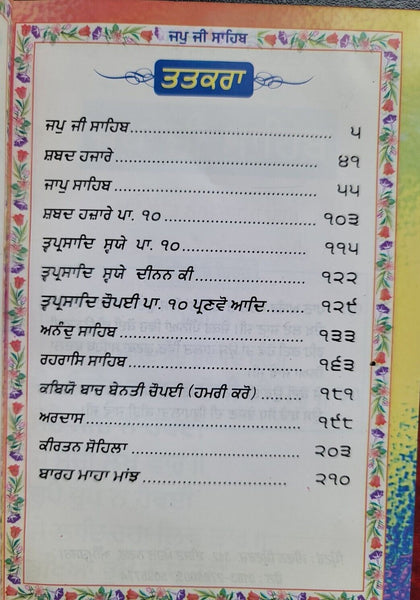 ਜਪੁ ਜੀ ਸਾਹਿਬ
ਤਤਕਰਾ
ਜਪੁ ਜੀ ਸਾਹਿਬ.............................. ੫
ਸ਼ਬਦ ਹਜਾਰੇ.............................. ੪੧
ਜਾਪੁ ਸਾਹਿਬ.............................. ੫੫
ਸ਼ਬਦ ਹਜ਼ਾਰੇ ਪਾ. ੧੦....................... ੧੦੩
ਤ੍ਵਪ੍ਰਸਾਦਿ ਸ੍ਵਯੇ ਪਾ. ੧੦.................... ੧੧੫
ਤ੍ਵਪ੍ਰਸਾਦਿ ਸ੍ਵਯੇ ਦੀਨਨ ਕੀ.................. ੧੨੨
ਤ੍ਵਪ੍ਰਸਾਦਿ ਚੋਪਈ ਪਾ. ੧੦ ਪ੍ਰਣਵੋ ਆਦਿ....... ੧੨੯
ਅਨੰਦ ਸਾਹਿਬ............................ ੧੩੩
ਰਹਰਾਸਿ ਸਾਹਿਬ......................... ੧੬੩
ਕਬਿਯੋ ਬਾਚ ਬੇਨਤੀ ਚੋਪਈ (ਹਮਰੀ ਕਰੋ)........ ੧੮੧
ਅਰਦਾਸ................................ ੧੯੮
ਕੀਰਤਨ ਸੋਹਿਲਾ......................... ੨੦੩
ਬਾਰਹ ਮਾਹਾ ਮਾਂਝ....................... ੨੧੦